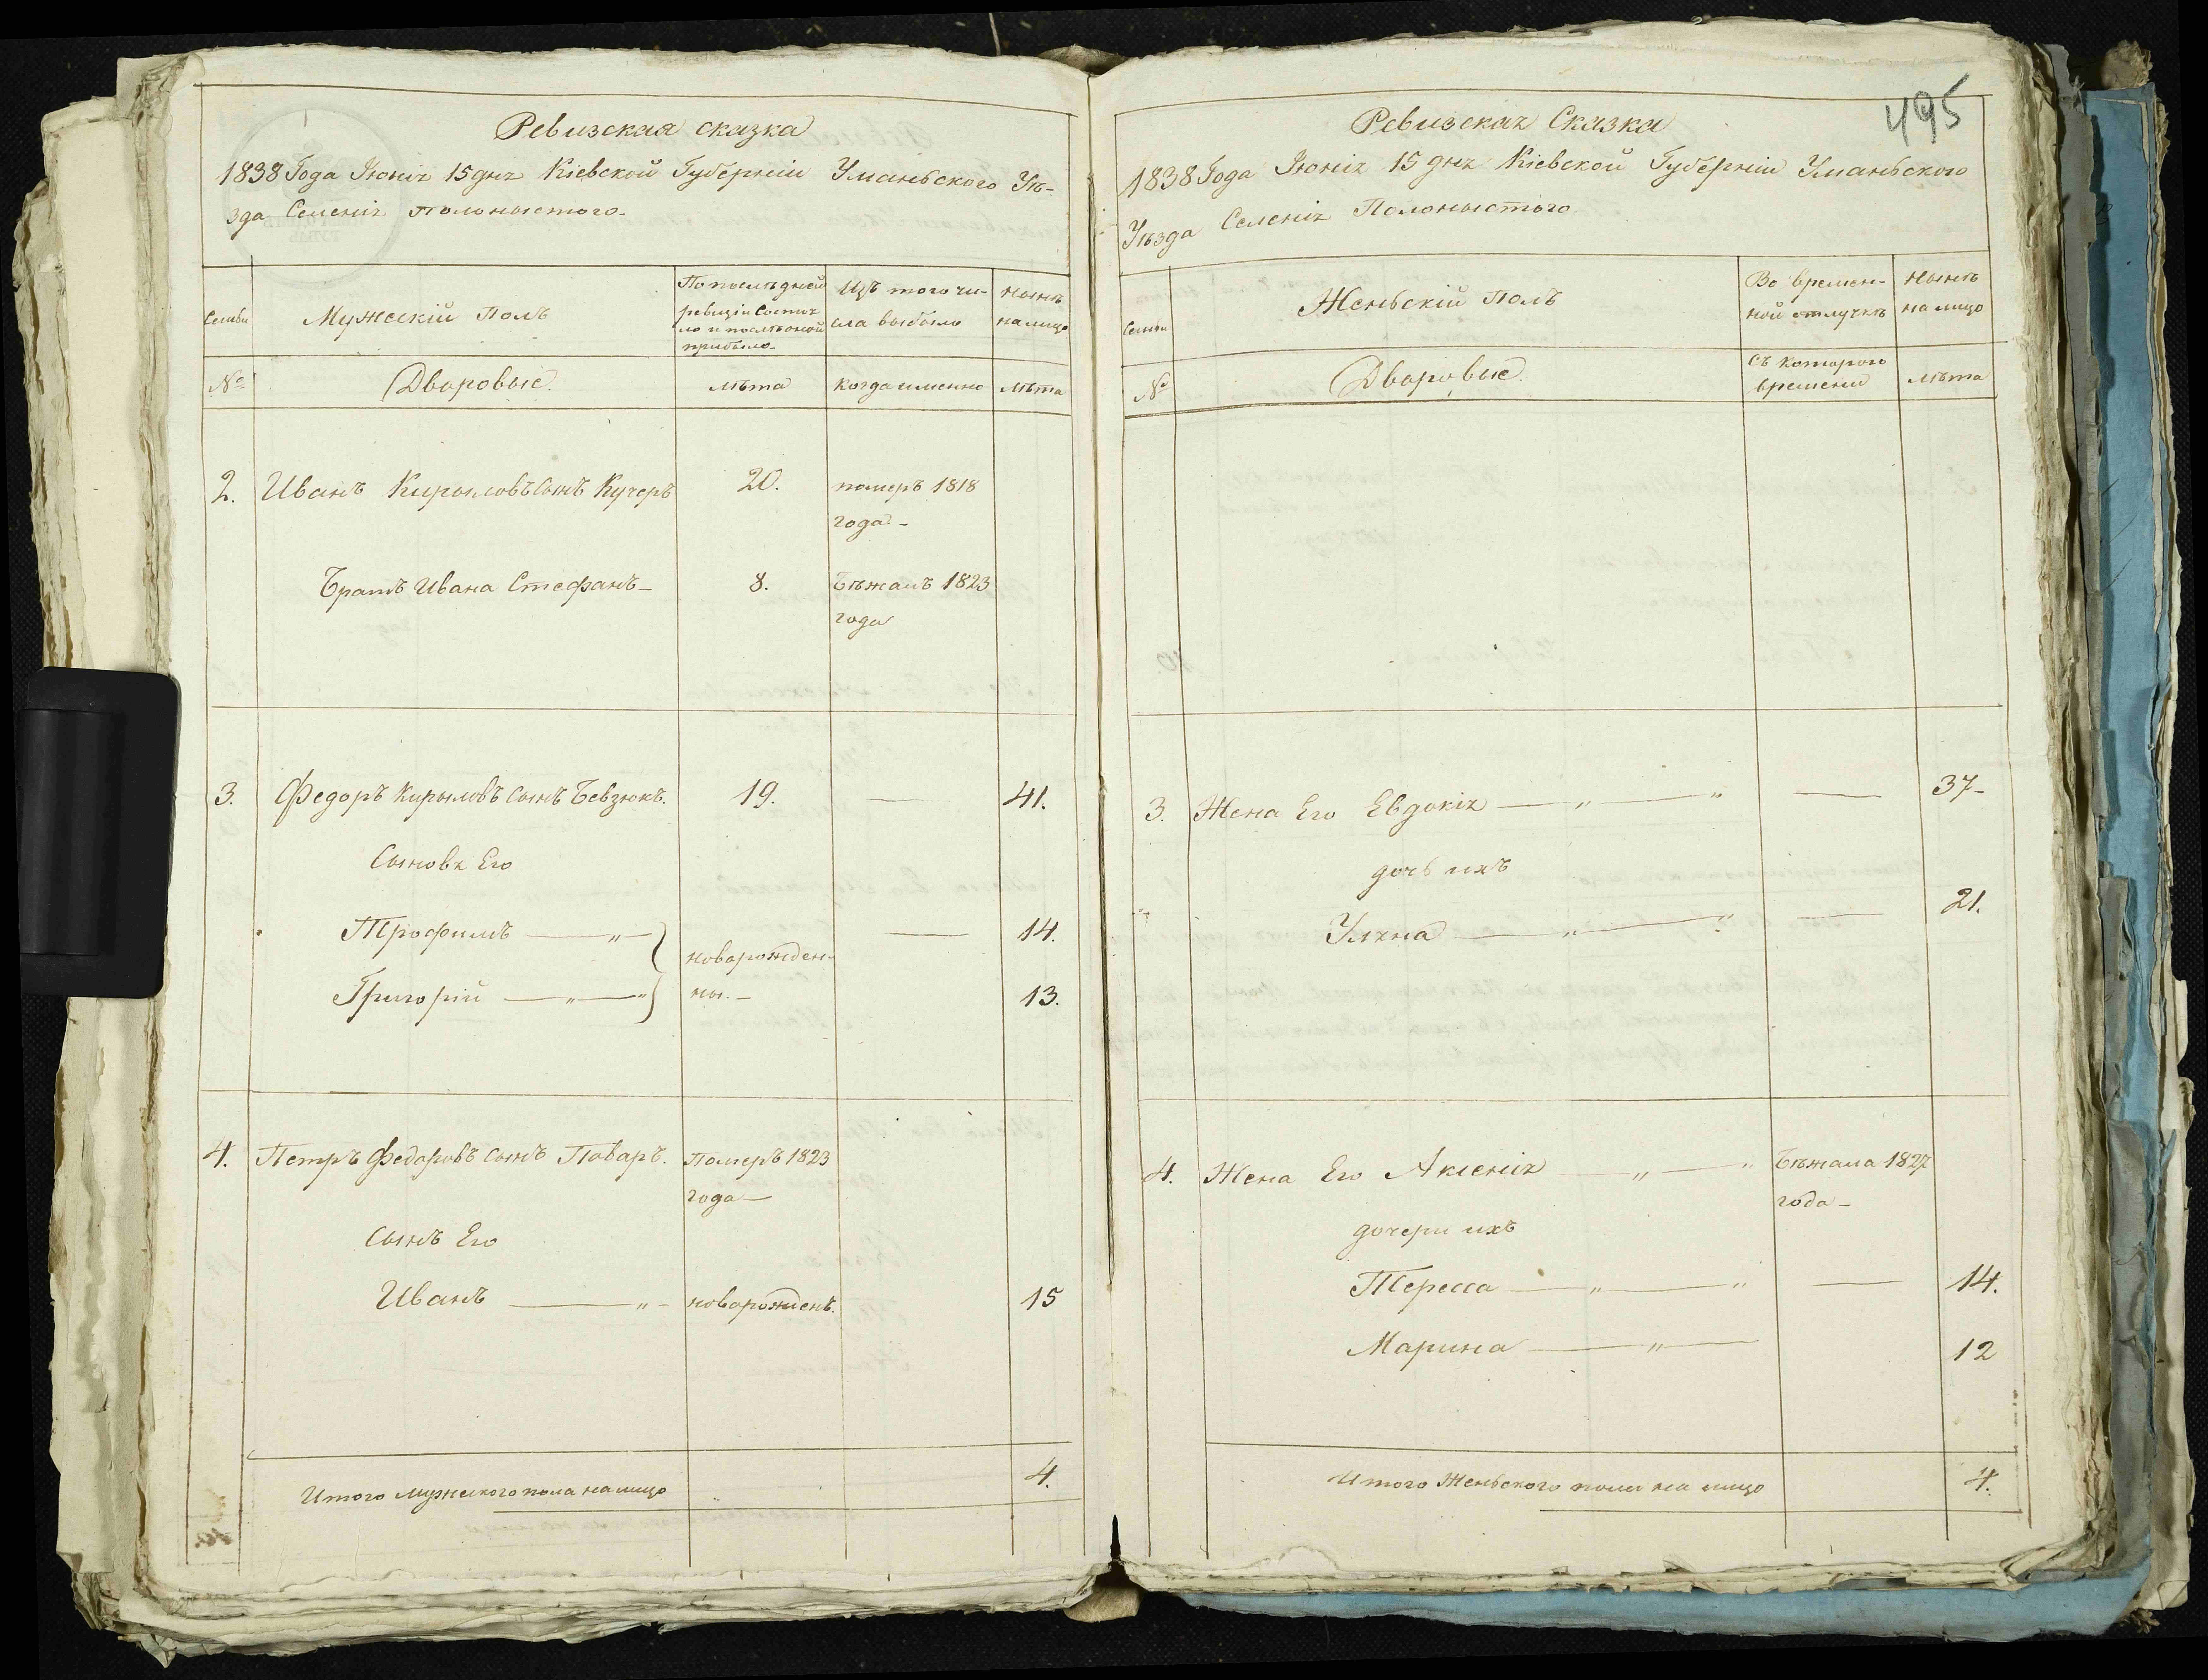 Ревизская сказка
1838 Года Іюнія 15 дня Кіевской Губерніи Уманьского Уѣ-
зда Селенія Полоныстого
Семьи
Мужескій Полъ
По послѣдней
ревизіи Состоя
ло и послѣ оной
прибыло
Изъ того чи-
сла выбыло
Нынѣ
на лицо
№
Дворовые.
лѣта
когда именно
лѣта
2. Иванъ Кириловъ Сынъ Кучеръ 20. померъ 1818
года
Братъ Ивана Стефанъ 8. Бѣжалъ 1823
года
3. Федоръ Кирыловъ Сынъ Бевзюкъ. 19. — 41.
Сыновя Его
Трофимъ — 14.
новорожден-
ны.
Григорій 13.
4. Петръ Федоровъ Сынъ Поваръ. Померъ 1823
года
Сынъ Его
Иванъ новорожденъ. 15
Итого мужеского пола на лицо 4.
495
Ревизская Сказка
1838 Года Іюнія 15 дня Кіевской Губерніи Уманьского
Уѣзда Селенія Полоныстого
Семьи
Женьскій Полъ
Во времен-
ной отлучкѣ
Нынѣ
на лицо
№
Дворовые.
Съ котораго
времени
лѣта
3. Жена Его Евдокія — 37
дочь ихъ
Уляна — 21.
4. Жена Его Аксенія Бѣжала 1827
года
дочери ихъ
Тересса — 14.
Марина 12
Итого Женьского пола на лицо 4.